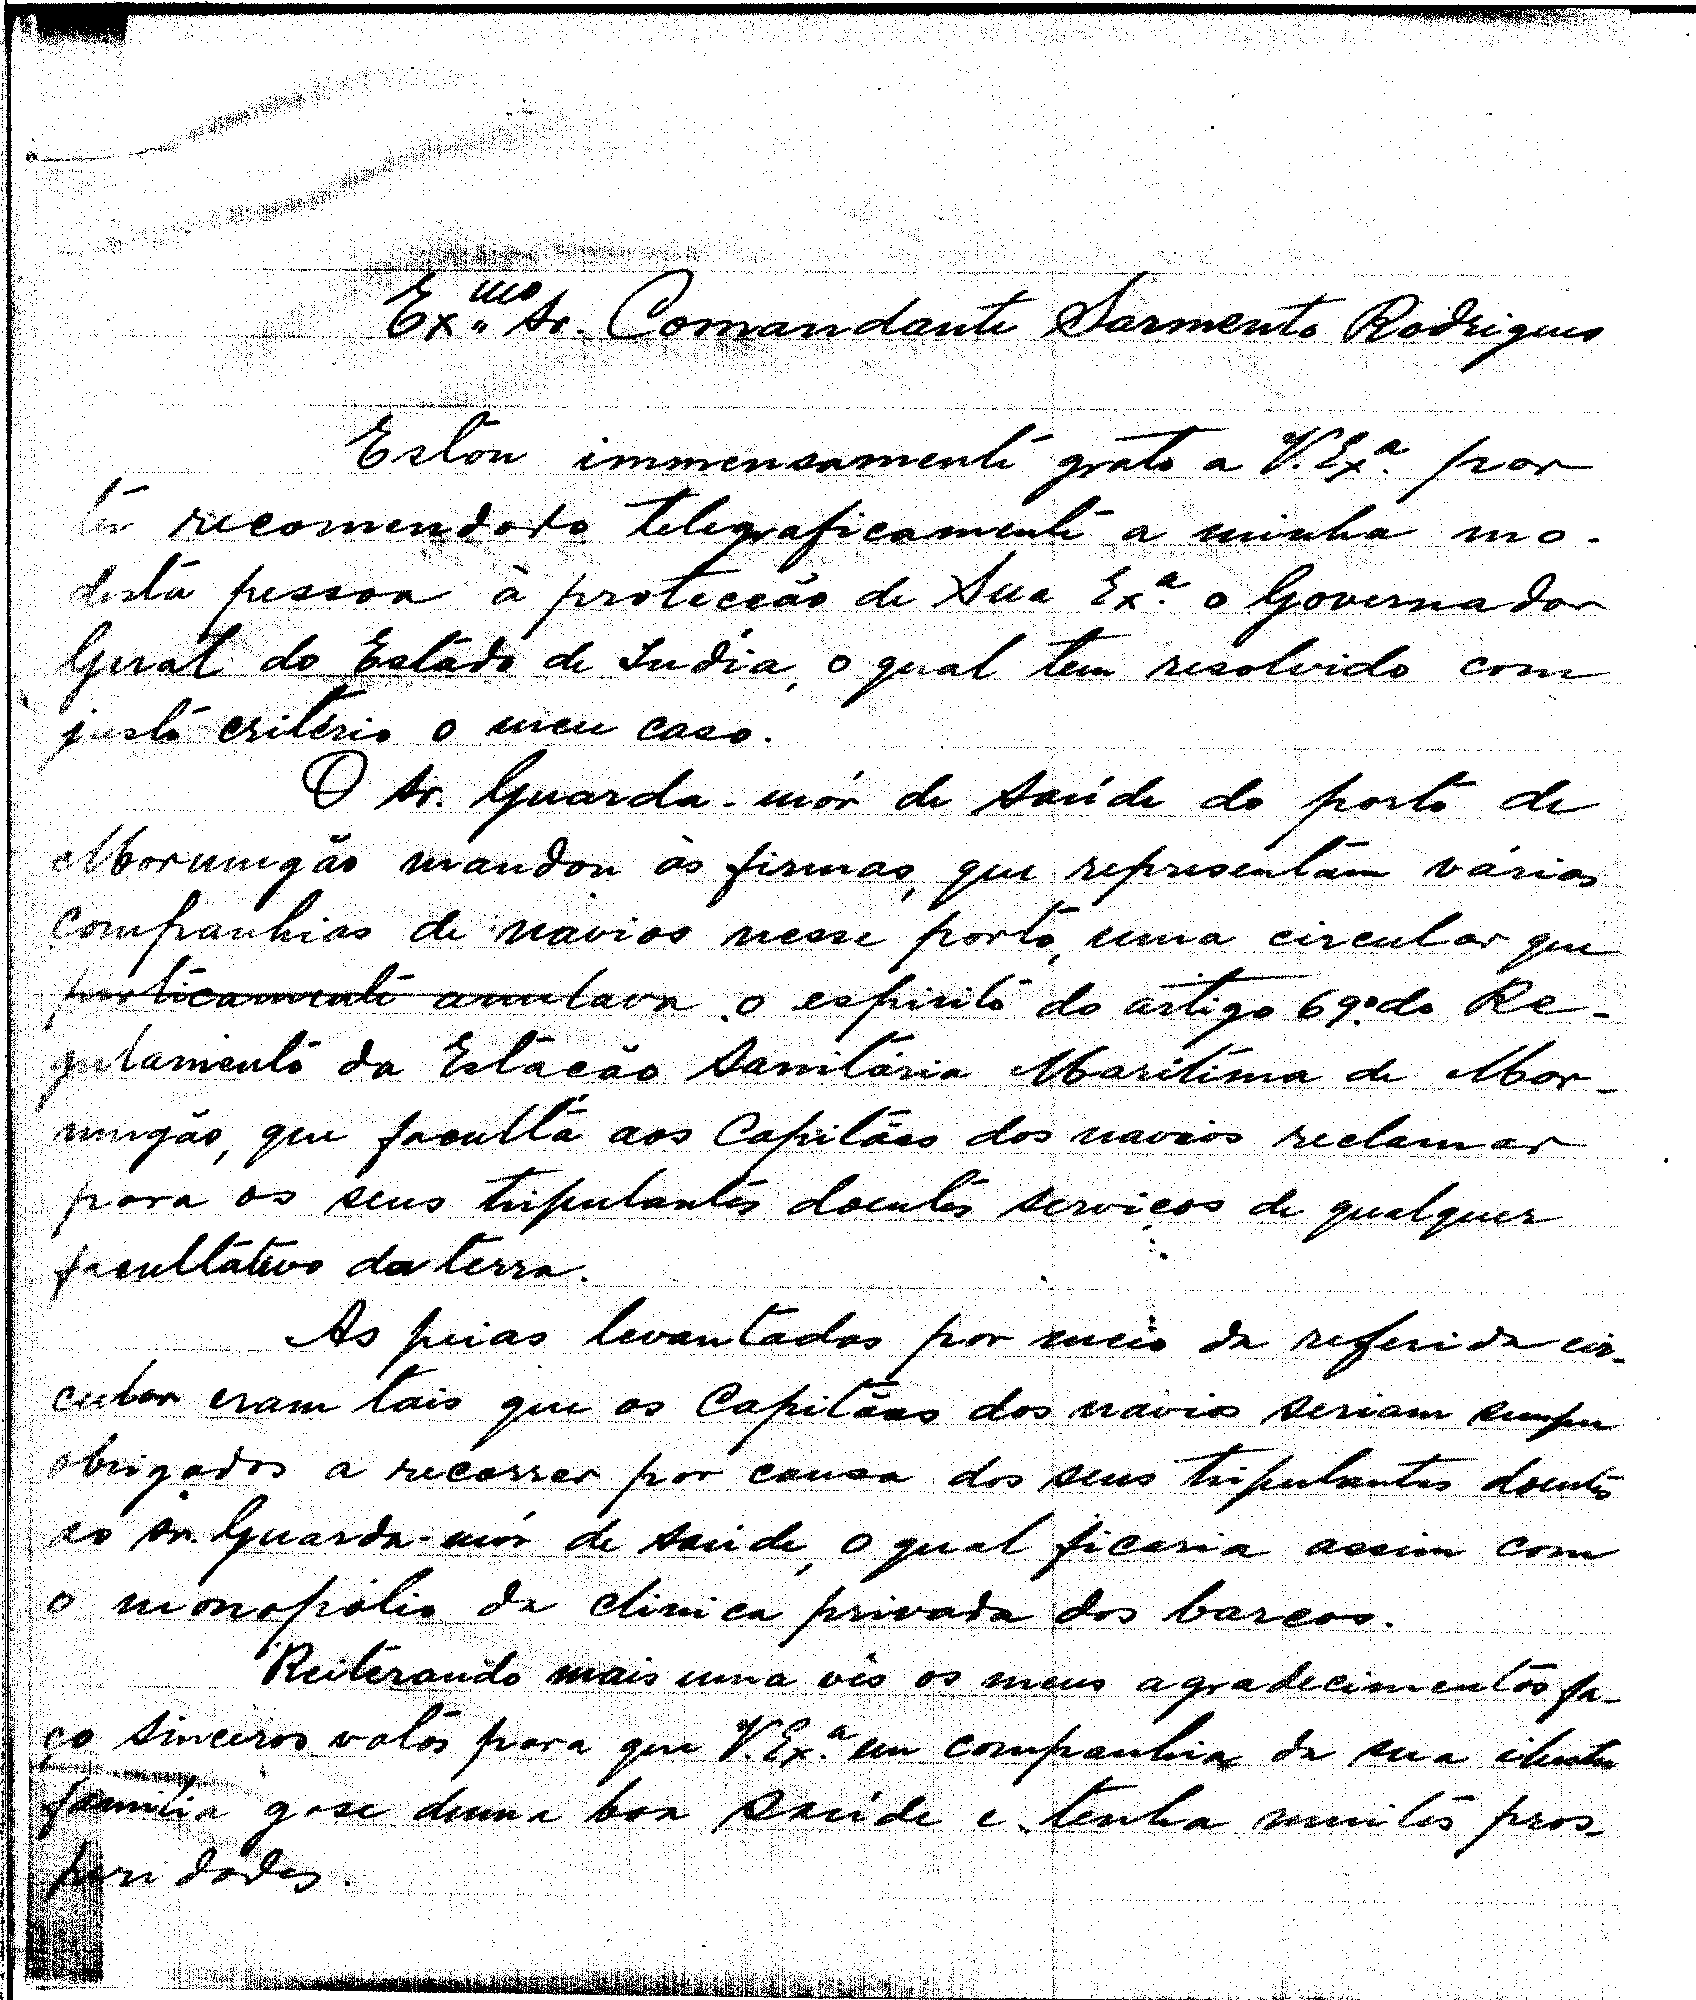 Ex.mo Sr. Comandante Sarmento Rodrigues
Estou immensamente grato a V. Ex.a por
ter recomendado telegraficamente a minha mo-
desta pessoa à protecção de Sua Ex.a o Governador
Geral do Estado de India, o qual tem resolvido com
justo critério o meu caso.
O Sr. Guarda-mór de saúde do porto de
Mormugão mandou às firmas, que representam vários
companhias de navios nesse porto, uma circular que
praticamente anulava o espirito do artigo 69.º do Re-
gulamento da Estação Sanitária Maritima de Mor-
mugão, que faculta aos Capitães dos navios reclamar
para os seus tripulantes doentes serviços de qualquer
facultativo da terra.
As peias levantadas por meio da referida cir-
cular eram tais que os Capitães dos navios seriam sempre
obrigados a recorrer por causa dos seus tripulantes doentes
ao Sr. Guarda-mór de saúde, o qual ficaria assim com
o monopólio da clinica privada dos barcos.
Reiterando mais uma vês os meus agradecimentos fa-
ço sinceros votos para que V. Ex.a em companhia da sua ilustre
familia gose duma boa saúde e tenha muitos pros-
peridades.